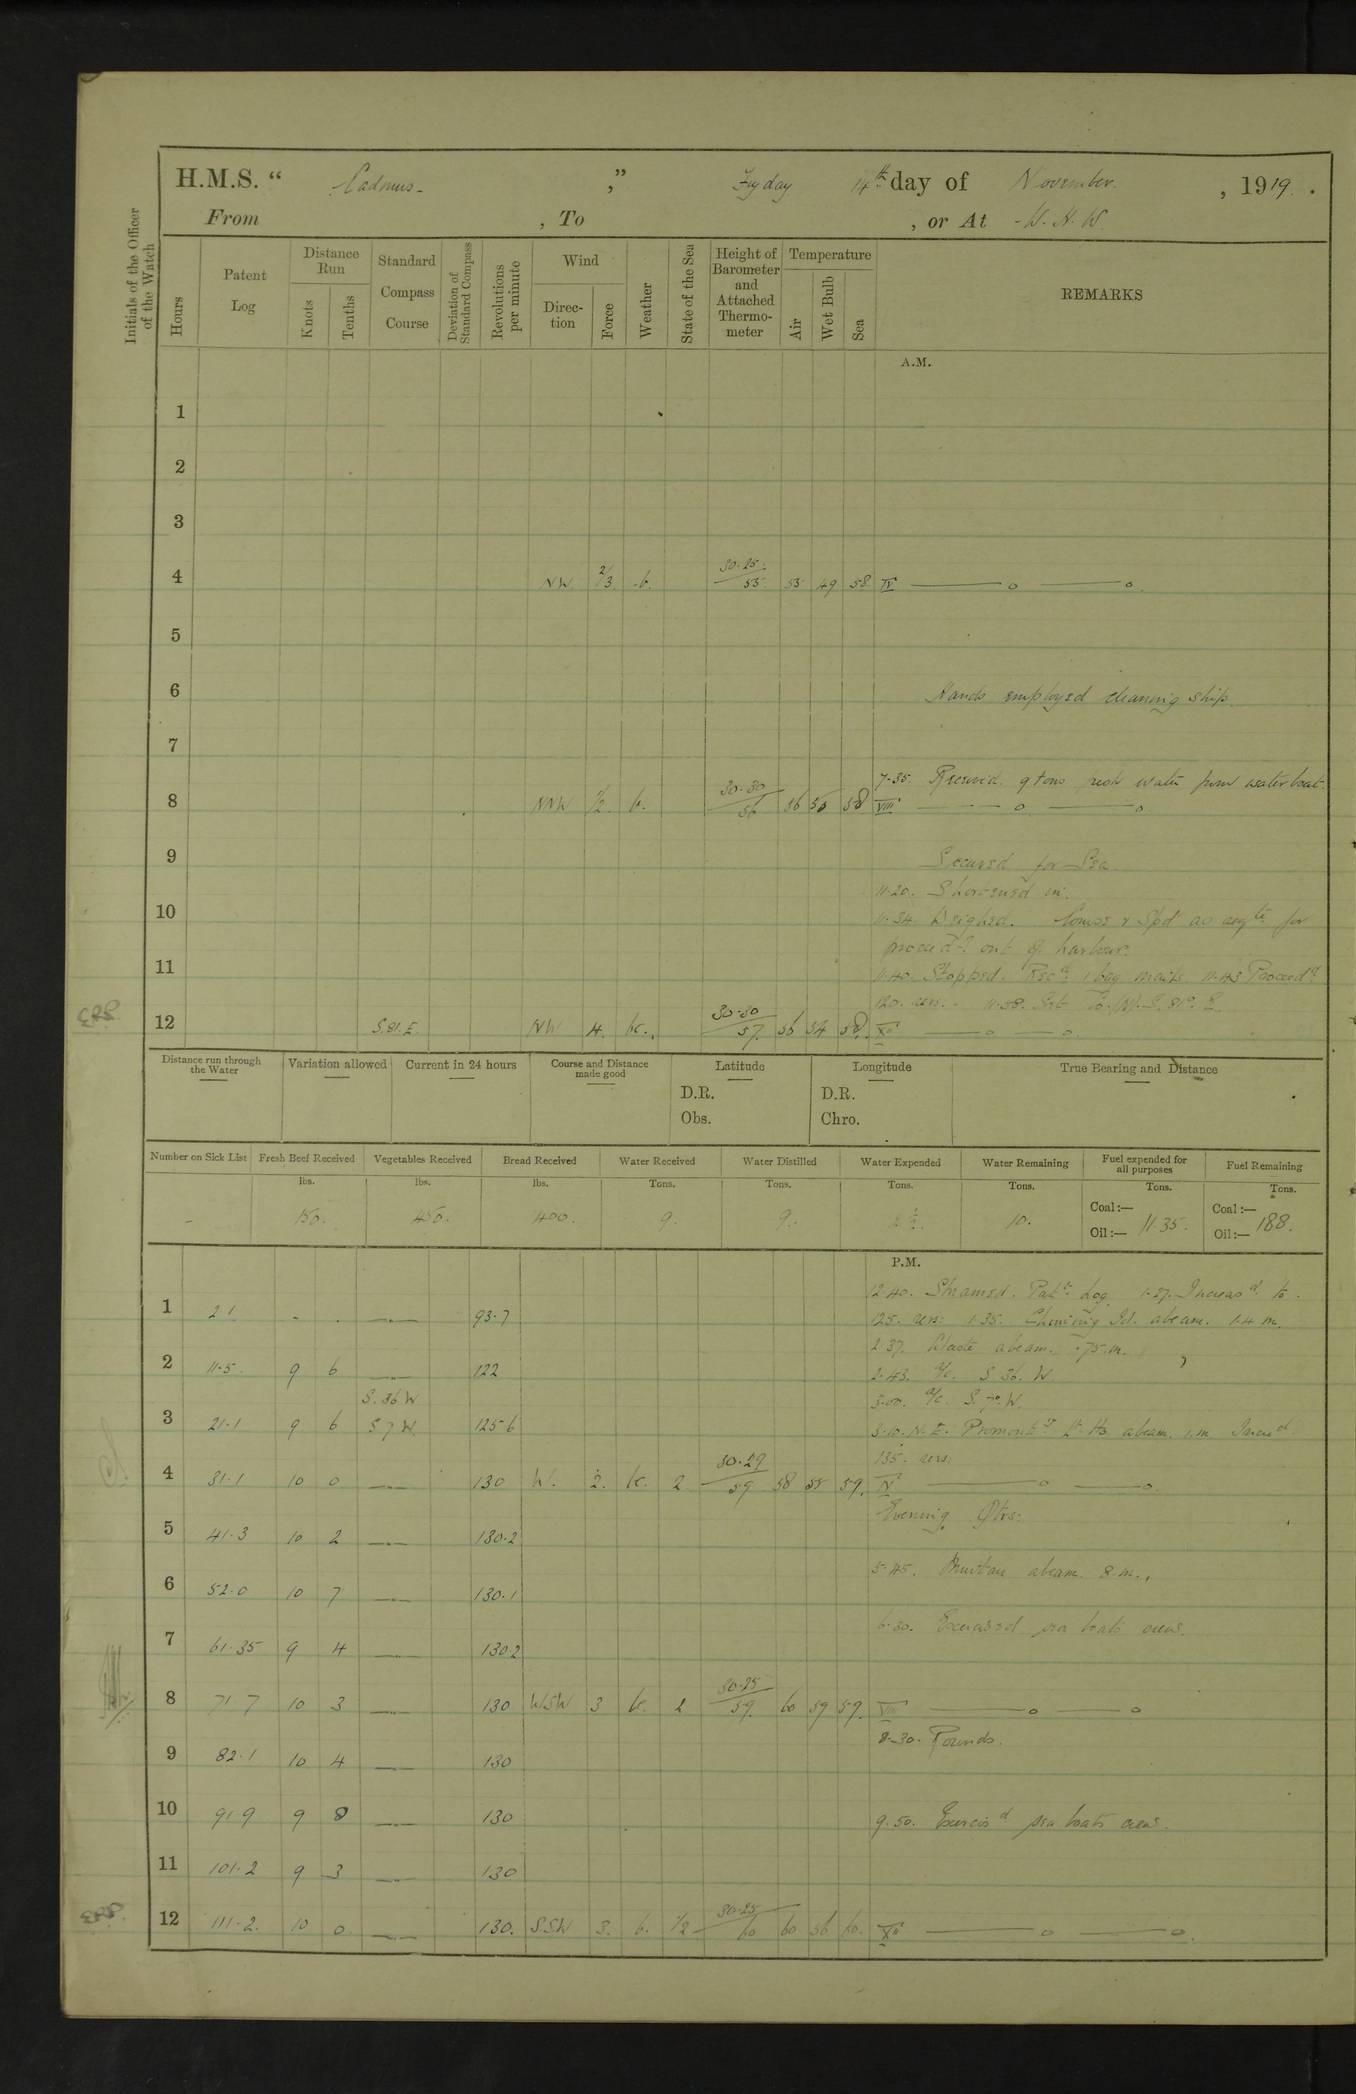 H.M.S. “ Cadmus. ,” Fryday 14th day of November. , 1919.
From , To , or At W. H. W.
Initials of the Officer of the Watch
Hours
Patent Log
Distance Run
Knots
Tenths
Standard Compass Course
Deviation of Standard Compass
Revolutions per minute
Wind
Direction
Force
Weather
State of the Sea
Height of Barometer and Attached Thermometer
Temperature
Air
Wet Bulb
Sea
REMARKS
A.M.
1
2
3
4 NW 2/3 b. 30.25 55 55 49 58 IV
5
6 Hands employed cleaning ship.
7
7.35. Received 9 tons fresh water from water boat.
8 NNW 1/2 b. 30.30 56 56 50 58 VIII
9 Secured for Sea
11.20. Shortened in.
10 11.34. Weighed. Comos & Spd as reqte for
proceedg out of harbour.
11 11.40. Stopped. Recd 1 bag mails. 11.43 Proceedd
120. revs. 11.58. Set Co. (N). S. 81° E.
12 S.81.E. NW 4. bc. 30.30 57. 56 54 58. XII
Distance run through the Water
Variation allowed
Current in 24 hours
Course and Distance made good
Latitude
D.R.
Obs.
Longitude
D.R.
Chro.
True Bearing and Distance
Number on Sick List
Fresh Beef Received
Vegetables Received
Bread Received
Water Received
Water Distilled
Water Expended
Water Remaining
Fuel expended for all purposes
Fuel Remaining
lbs. lbs. lbs. Tons. Tons. Tons. Tons. Tons. Tons.
- 150. 450. 400. 9. 9. 10. Coal:— Oil:— 11.35. Coal:— Oil:— 188.
P.M.
12.40. Streamed. Patt. Log. 1.27. Increasd to
1 2.1 - - 93.7 125. revs. 1.35. abeam. 1.4 m.
2.37. abeam. .75.m.
2 11.5 9 6 122 2.43. a/c. S 36. W.
S.36 W 3.00. a/c. S. 7°. W.
3 21.1 9 6 S 7 W. 125.6 3.10. N.E. Promonty Lt. Ho. abeam. 1.m. Incred
135. revs.
4 31.1 10 0 130 W. 2. bc. 2 30.29 59 58 55 59. IV
Evening Qtrs:
5 41.3 10 2 130.2
5.45. abeam. 8.m.
6 52.0 10 7 130.1
6.30. Exercised sea boats crews.
7 61.35 9 4 130.2
8 71.7 10 3 130 WSW 3 bc. 2 30.25 59. 60 59 59. VIII
8.30. Rounds.
9 82.1 10 4 130
10 91.9 9 8 130 9.50. Exercisd sea boats crews.
11 101.2 9 3 130
12 111.2. 10 0 130. S.SW 3. b. 1/2 30.25 60 60 56 60. XII